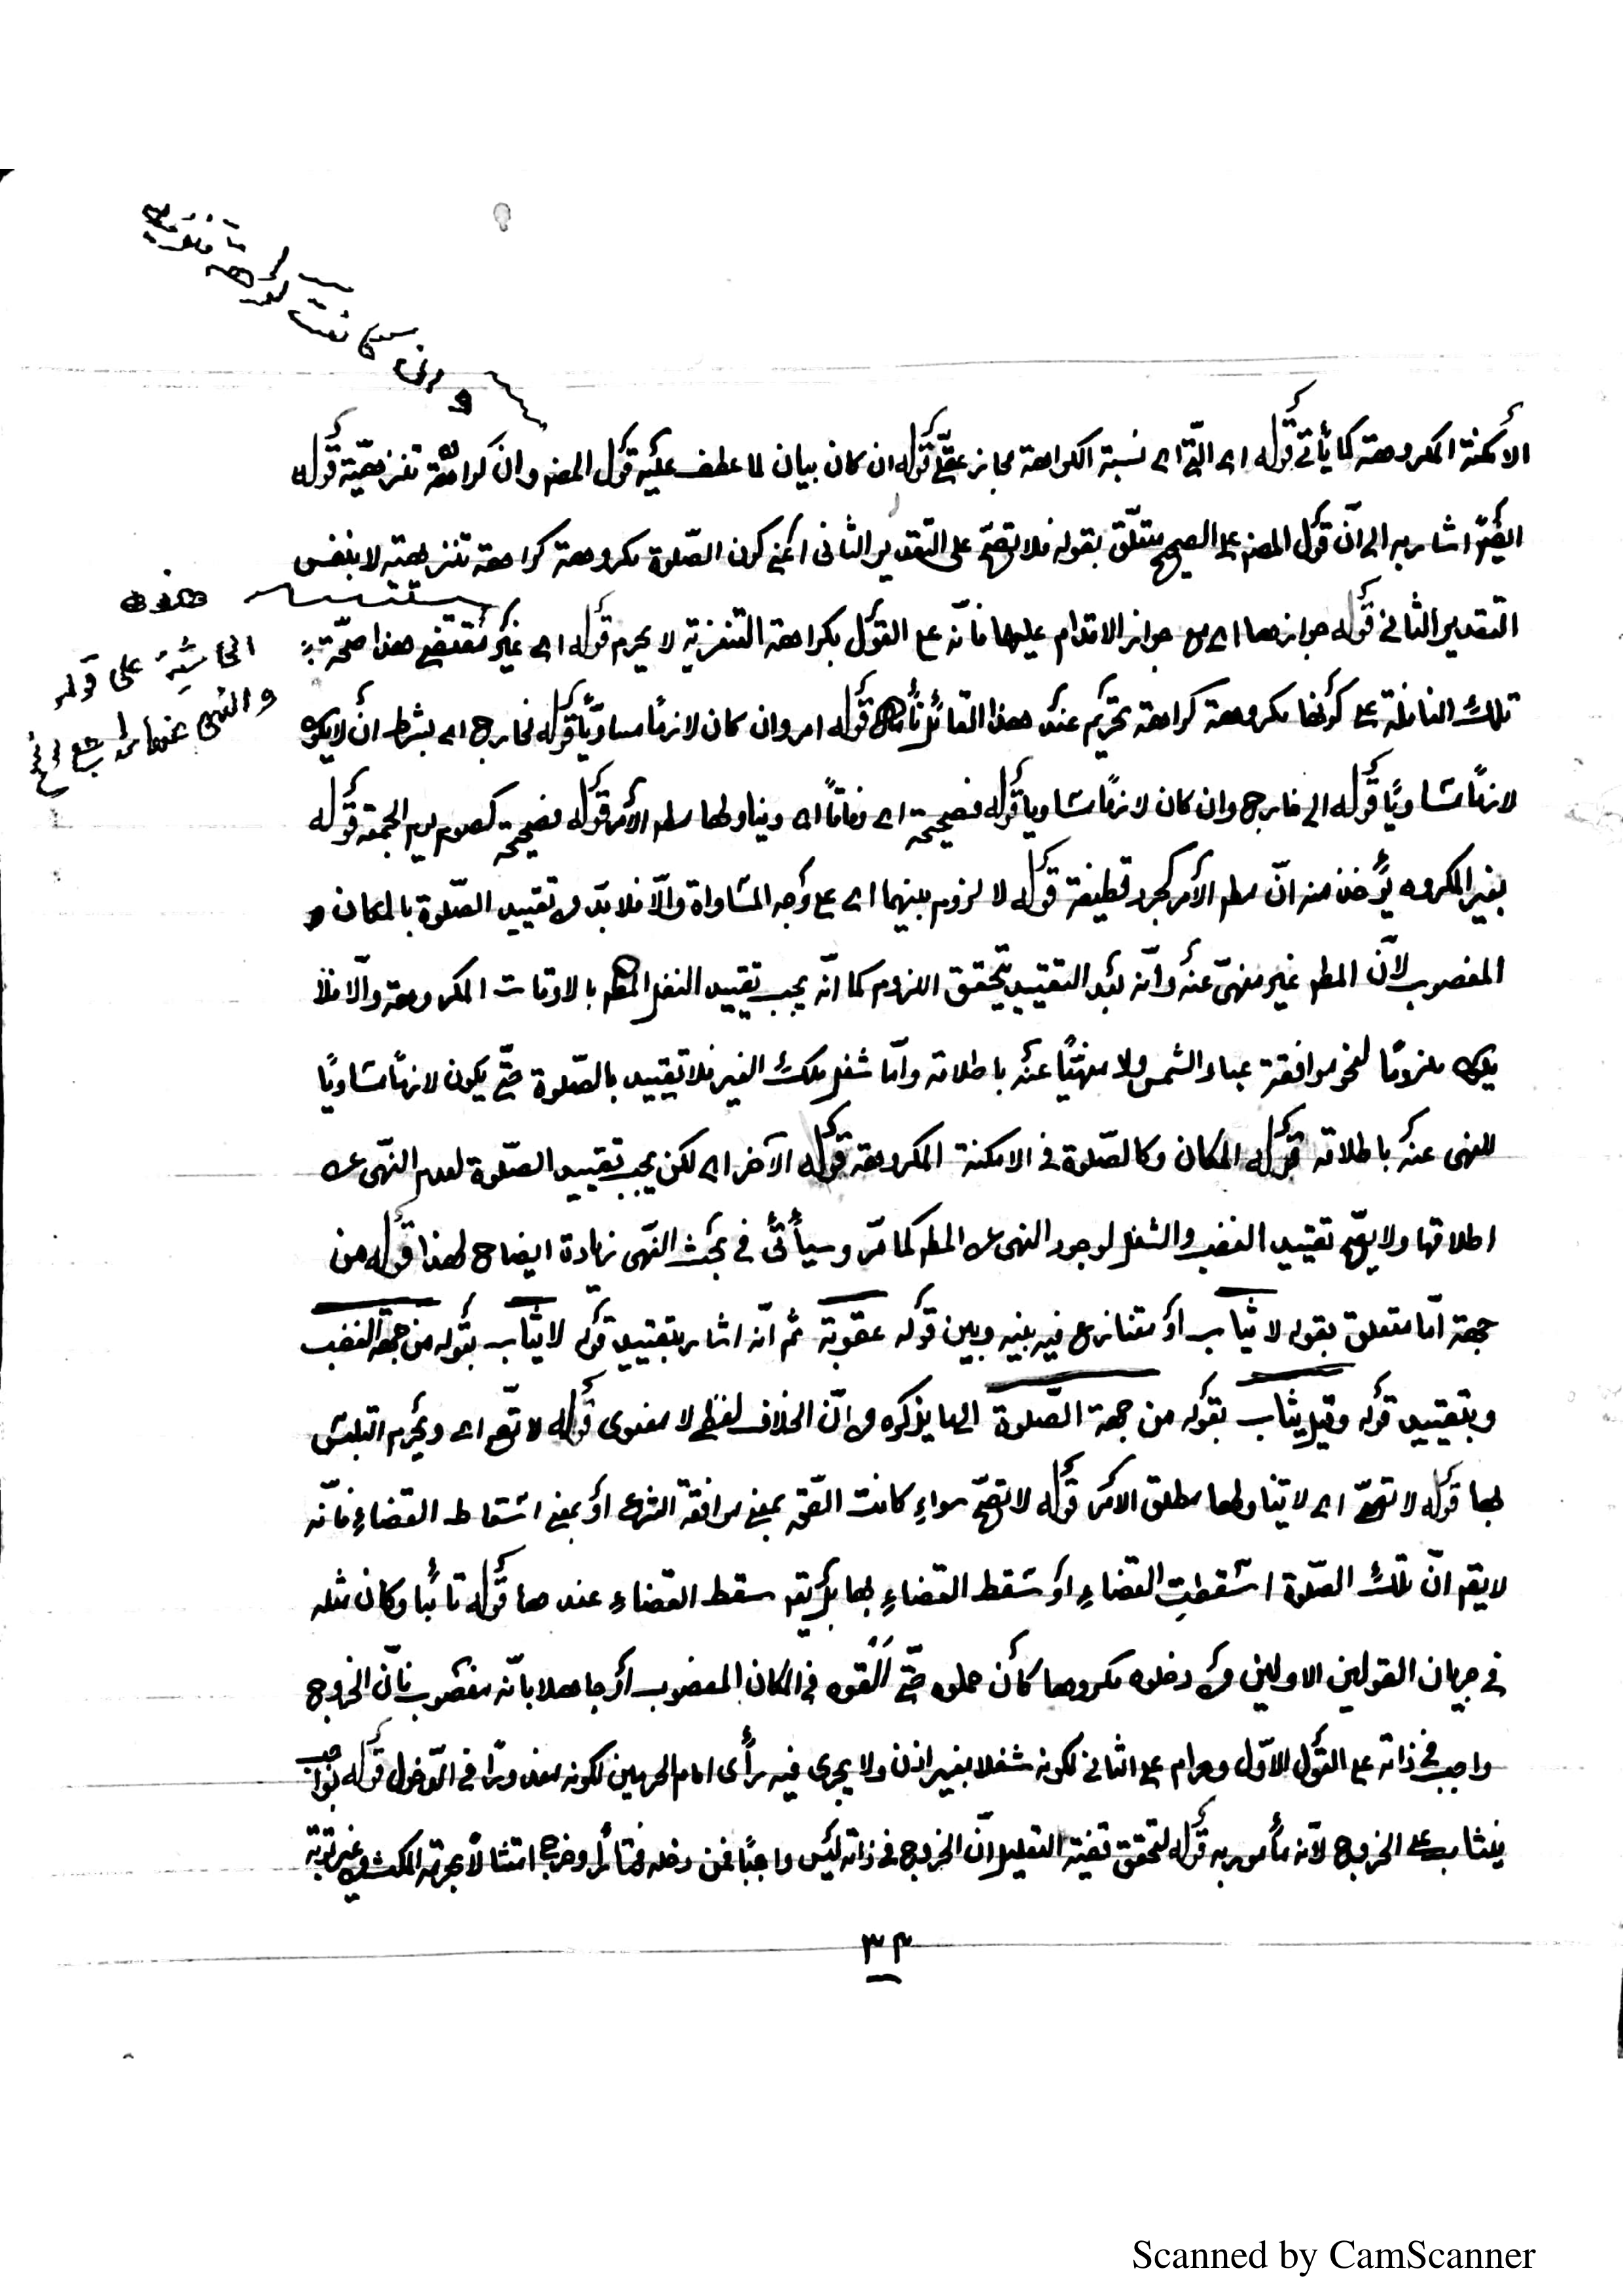 وان كانت كراهة تنزيه
الأمكنة المكروهة كما يأتي قوله اى الّتى اى نسبة الكراهة مجاز عقلّى قوله ان كان بيان لما عطف عليه قول المص وان كراهة تنزيهيّة قوله
ايضًا اشار به الى انّ قول المص على الصحيح متعلّق بقوله فلا تصحّ على التقدير الثانى اعنى كون الصّلوة مكروهة كراهة تنزيهيّة لا بنفس
هذه
الحاشية على قوله
والنهى عنها راجع الخ
التقدير الثانى قوله جوازها اى مع جواز الاقدام عليها فانّه على القول بكراهة التنزيه لا يحرم قوله اى غير مقتضى هذا صحّة
تلك النافلة على كونها مكروهة كراهة تحريم عند هذا القائل قوله امر وان كان لازمًا مساويًا قوله لخارج اى بشرط ان لا يكون
لازمًا مساويًا قوله الى خارج وان كان لازمًا مساويا قوله فصحيحة اى وفاقًا اى ويناولها مطلق الأمر قوله فصحيحة كصوم يوم الجمعة قوله
بغير المكروه يؤخذ منه انّ مطلق الأمر كمجرد قطيفة قوله لا لزوم بينهما اى على وجه المساواة والّا فلا بدّ من تقييد الصّلوة بالمكان
المغصوب لأنّ المطلق غير منهىّ عنه وانّه بعد التقييد يتحقق اللزوم كما انّه يجب تقييد النفل المطلق بالاوقات المكروهة والّا فلا
يكون ملزومًا لنحو موافقة عباد الشمس ولا منهيًّا عنه باطلاقه وامّا شغل ملك الغير فلا تقييد بالصّلوة حتّى يكون لازمًا مساويًا
للنهى عنه باطلاقه قوله المكان وكالصّلوة فى الامكنة المكروهة قوله الآخر اى لكن يجب تقييد الصّلوة لعدم النّهى عن
اطلاقها ولا يصحّ تقييد الغصب والشغل لوجود النهى عن المطلق كما مرّ وسيأتى فى بحث النّهى زيادة ايضاح لهذا قوله من
جهة امّا متعلق بقوله لا يثاب أو متنازع فيه بينه وبين قوله عقوبة ثم انّه اشار بتقييد قوله لا يثاب بقوله من جهة الغصب
وبتقييد قوله وقيل يثاب بقوله من جهة الصّلوة الى ما يذكره من انّ الخلاف لفظى لا معنوى قوله لا تصح اى ويحرم التلبّس
بها قوله لا تصحّ اى لا يتناولها مطلق الامر قوله لا تصحّ سواء كانت الصّحّة بمعنى موافقة الشرع أو بمعنى اسقاط القضاء فانّه
لا يقم انّ تلك الصّلوة اسقطت القضاء أو سقط القضاء بها بل يقم سقط القضاء عندها قوله تائبا وكان مثله
فى جريان القولين الاولين من دخله مكروها كأن حملوه حتّى القوه فى المكان المغصوب أو جاهلا بانّه مغصوب فانّ الخروج
واجب فى ذاته على القول الاوّل وحرام على الثانى لكونه شغلا بغير اذن ولا يجرى فيه رأى امام الحرمين لكونه معذورًا فى الدّخول قوله بواجب
فيثاب على الخروج لانّه مأمور به قوله لتحقق قضيّة التعليل انّ الخروج فى ذاته ليس واجبًا فمن دخله وخرج امتثالا لحرمة المكث من غير توبة
٣٣
Scanned by CamScanner